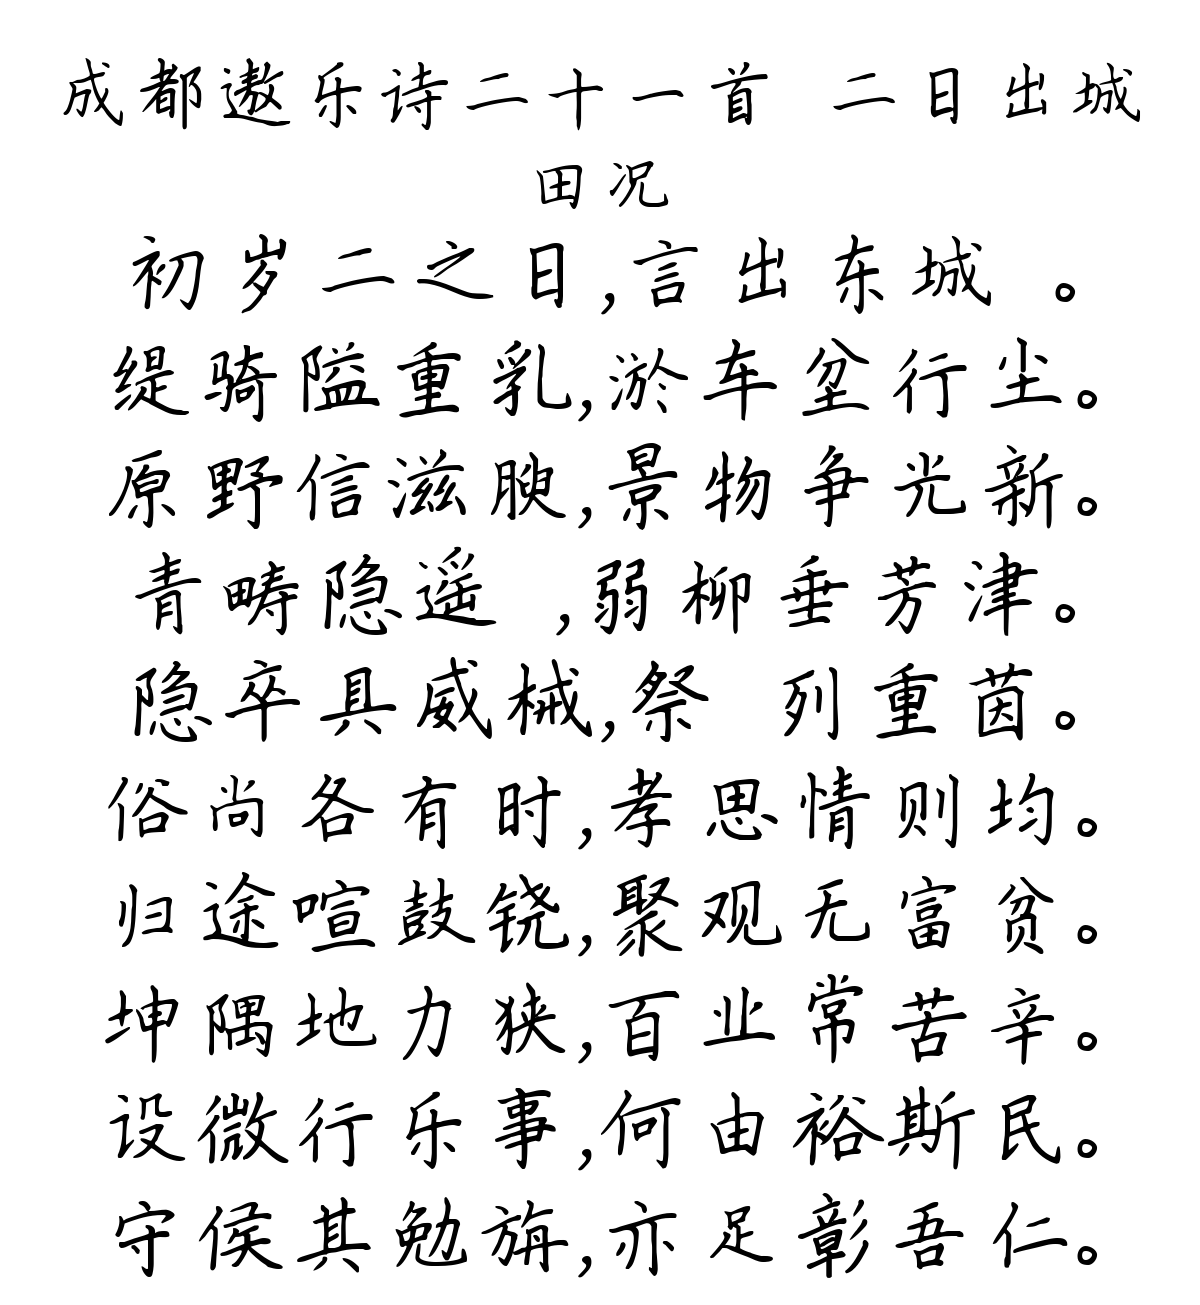 成都遨乐诗二十一首 二日出城
田况
初岁二之日,言出东城 。
缇骑隘重乳,淤车坌行尘。
原野信滋腴,景物争光新。
青畴隐遥 ,弱柳垂芳津。
隐卒具威械,祭 列重茵。
俗尚各有时,孝思情则均。
归途喧鼓铙,聚观无富贫。
坤隅地力狭,百业常苦辛。
设微行乐事,何由裕斯民。
守侯其勉旃,亦足彰吾仁。